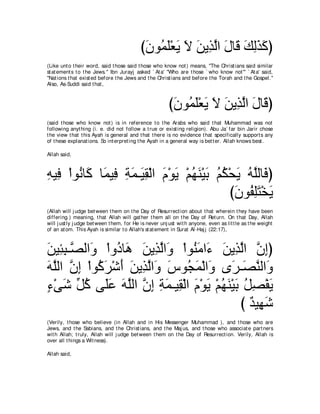 (كَذَلِكَ قَالَ الَّذِينَ لاَ يَعْلَمُونَ)
(Like unto their word, said those said those who know not) means, "The Christians said similar
statements to the Jews.'' Ibn Jurayj asked `Ata' "Who are those `who know not''' `Ata' said,
"Nations that existed before the Jews and the Christians and before the Torah and the Gospel.''
Also, As-Suddi said that,
(قَالَ الَّذِينَ لاَ يَعْلَمُونَ)
(said those who know not) is in reference to the Arabs who said that Muhammad was not
following anything (i.e. did not follow a true or existing religion). Abu Ja`far bin Jarir chose
the view that this Ayah is general and that there is no evidence that specifically supports any
of these explanations. So interpreting the Ayah in a general way is better. Allah knows best.
Allah said,
(فَاللَّهُ يَحْكُمُ بَيْنَهُمْ يَوْمَ الْقِيَـمَةِ فِيمَا كَانُواْ فِيهِ
يَخْتَلِفُونَ)
(Allah will judge between them on the Day of Resurrection about that wherein they have been
differing.) meaning, that Allah will gather them all on the Day of Return. On that Day, Allah
will justly judge between them, for He is never unjust with anyone, even as little as the weight
of an atom. This Ayah is similar to Allah's statement in Surat Al-Hajj (22:17),
(إِنَّ الَّذِينَ ءَامَنُواْ وَالَّذِينَ هَادُواْ وَالصَّـبِئِينَ
وَالنَّصَـرَى وَالْمَجُوسَ وَالَّذِينَ أَشْرَكُواْ إِنَّ اللَّهَ
يَفْصِلُ بَيْنَهُمْ يَوْمَ الْقِيـمَةِ إِنَّ اللَّهَ عَلَى كُلِّ شَىْءٍ
شَهِيدٌ )
(Verily, those who believe (in Allah and in His Messenger Muhammad ), and those who are
Jews, and the Sabians, and the Christians, and the Majus, and those who associate partners
with Allah; truly, Allah will judge between them on the Day of Resurrection. Verily, Allah is
over all things a Witness).
Allah said,